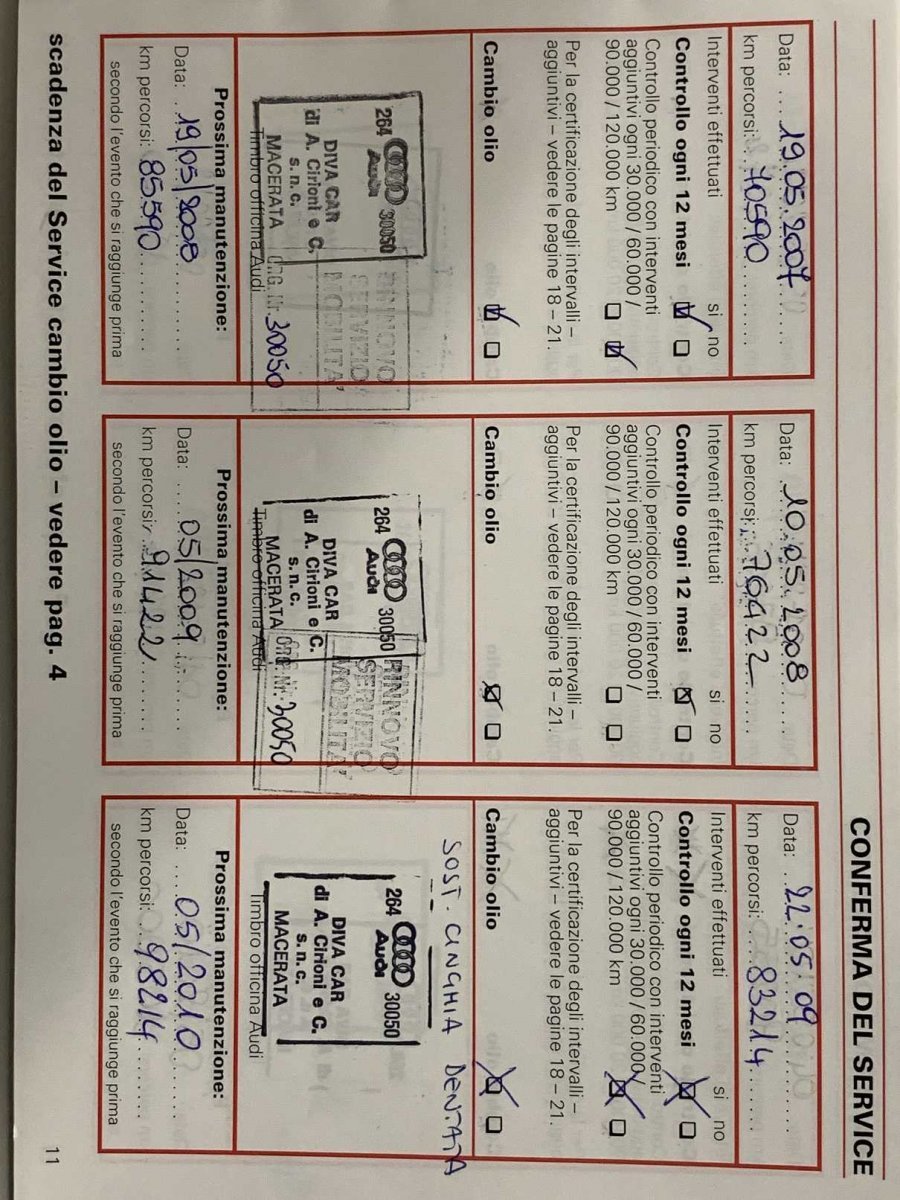 CONFERMA DEL SERVICE
Data: 19.05.2007
km percorsi: 70590
Interventi effettuati si no
Controllo ogni 12 mesi
Controllo periodico con interventi
aggiuntivi ogni 30.000 / 60.000 /
90.000 / 120.000 km
Per la certificazione degli intervalli –
aggiuntivi – vedere le pagine 18 – 21.
Cambio olio
264 30050
Audi
DIVA CAR
di A. Cirioni e C.
s.n.c.
MACERATA
RINNOVO
SERVIZIO
MOBILITA'
ORG. Nr. 30050
Timbro officina Audi
Prossima manutenzione:
Data: 19/05/2008
km percorsi: 85590
secondo l'evento che si raggiunge prima
Data: 10.05.2008
km percorsi: 76422
Interventi effettuati si no
Controllo ogni 12 mesi
Controllo periodico con interventi
aggiuntivi ogni 30.000 / 60.000 /
90.000 / 120.000 km
Per la certificazione degli intervalli –
aggiuntivi – vedere le pagine 18 – 21.
Cambio olio
264 30050
Audi
DIVA CAR
di A. Cirioni e C.
s.n.c.
MACERATA
RINNOVO
SERVIZIO
MOBILITA'
ORG. Nr. 30050
Timbro officina Audi
Prossima manutenzione:
Data: 05/2009
km percorsi: 91422
secondo l'evento che si raggiunge prima
Data: 22.05.09
km percorsi: 83214
Interventi effettuati si no
Controllo ogni 12 mesi
Controllo periodico con interventi
aggiuntivi ogni 30.000 / 60.000 /
90.000 / 120.000 km
Per la certificazione degli intervalli –
aggiuntivi – vedere le pagine 18 – 21.
Cambio olio
SOST. CINGHIA DENTATA
264 30050
Audi
DIVA CAR
di A. Cirioni e C.
s.n.c.
MACERATA
Timbro officina Audi
Prossima manutenzione:
Data: 05/2010
km percorsi: 98214
secondo l'evento che si raggiunge prima
scadenza del Service cambio olio – vedere pag. 4
11